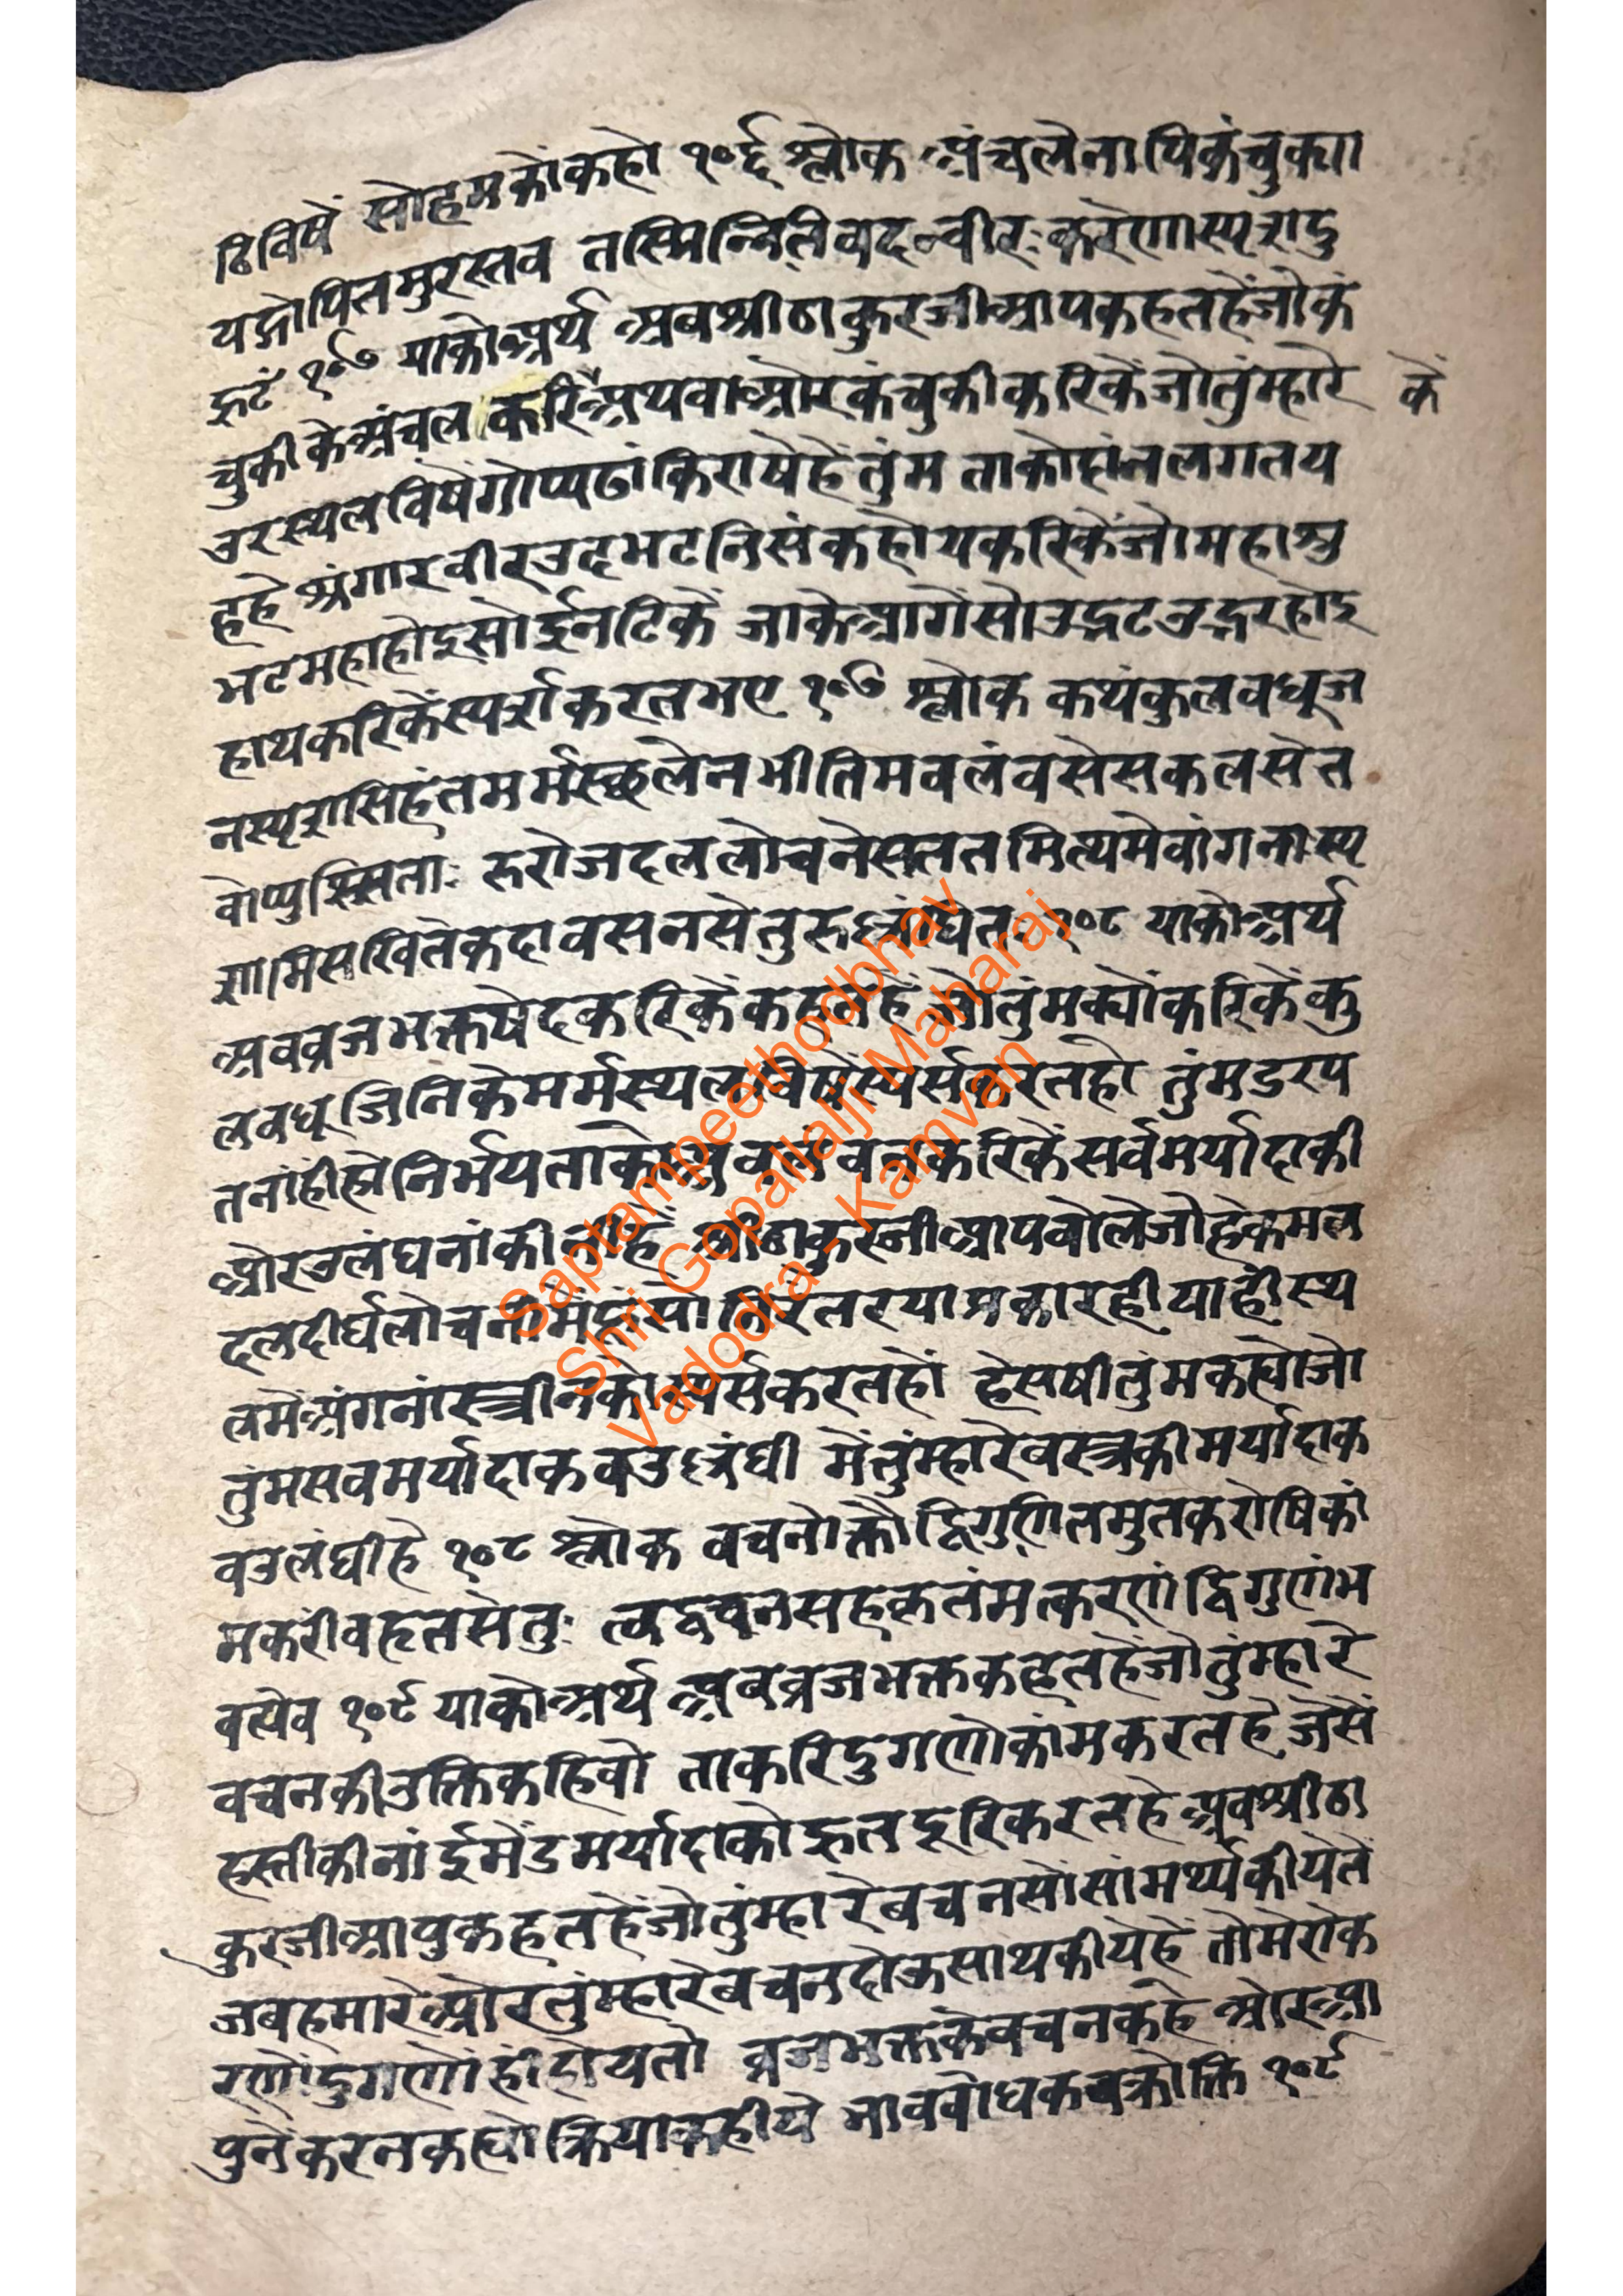 टिविषें सोहमकोंकहो १०६ श्लोक अंचलेनापिकंचुक्या
यद्गोपितमुरस्तव तस्मिन्नितिवादन्वीरः करेणास्पृशदु
द्भटं १०७ याकोअर्थ अबश्रीठाकुरजीआपकहतहेंजोकं
चुकीकेअंचल करिअथवाऔरकंचुकीकरिकेंजोतुंम्हारे कें
उरस्थलविषेंगोप्यढांकिराषेहेंतुंम ताकोहांनलगतय
हहे श्रंगारवीरउदभटनिसंकहोयकरिकेंजोमहाशु
भटमहाहोइसोईनटिकें जाकेआगेंसोउद्भटउद्गरहोइ
हाथकरिकेंस्पर्शकरतभए १०७ श्लोक कथंकुलवधूज
नस्पृशसिहंतमर्मस्छलेनभीतिमवलंवसेसकलसेत
वोप्पुत्सिताः सरोजदललोचनेसततमित्थमेवांगनास्पृ
शामिसखितेकदावसनसेतुरुल्लंघित १०८ याकोअर्थ
अबव्रजभक्तषेदकरिकेंकहतहें जोतुंमक्योंकरिकेंकु
लवधूजिनिकेमर्मस्थलविषेंस्पर्सकरतहो तुंमडरप
तनांहीहोनिर्भयताकोअवलंवनकरिकेंसर्वमर्यादाकी
ओरउलंघनांकीनीहें श्रीठाकुरजीआपबोलेजोहेकमल
दलदीर्घलोचनीमेंहूंसोनिरंतरयाप्रकारहीयाहीस्थ
लमेंअंगनांस्त्रीनकोस्पर्सकरतहों हेसषीतुंमकह्योजो
तुंमसवमर्यादाकबउल्लंघी मेंतुंम्हारेवस्त्रकीमर्यादाक
वउलंघीहे १०८ श्लोक वचनोक्तौद्विगुणितमुतकरोषिकां
मकरीवहृतसेतुः त्वद्वचनसहकृतंमत्करणं द्विगुणंभ
वत्येव १०९ याकोअर्थ अबव्रजभक्तकहतहेंजोतुंम्हारे
वचनकीउक्तिकहिवो ताकरिदुगणोकांमकरतहे जेसें
हस्तीकीनांईमेंडमर्यादाकोहृतदूरिकरतहे अवश्रीठा
कुरजीआपुकहतहेंजोतुंम्हारेबचनसोंसांमर्थ्यकीयेतें
जबहमारेओरतुंम्हारेबचनदोऊसाथकीयेहें तोमेरोक
रणोंदुगणोंहीहोयतो व्रजभक्तकेवचनकहे ओरआ
पुनेंकरनकह्यो क्रियाकहीये भाववोधकवक्रोक्ति १०९
Saptampeethodbhav
Shri Gopallalji Maharaj
Vadodra - Kamvan